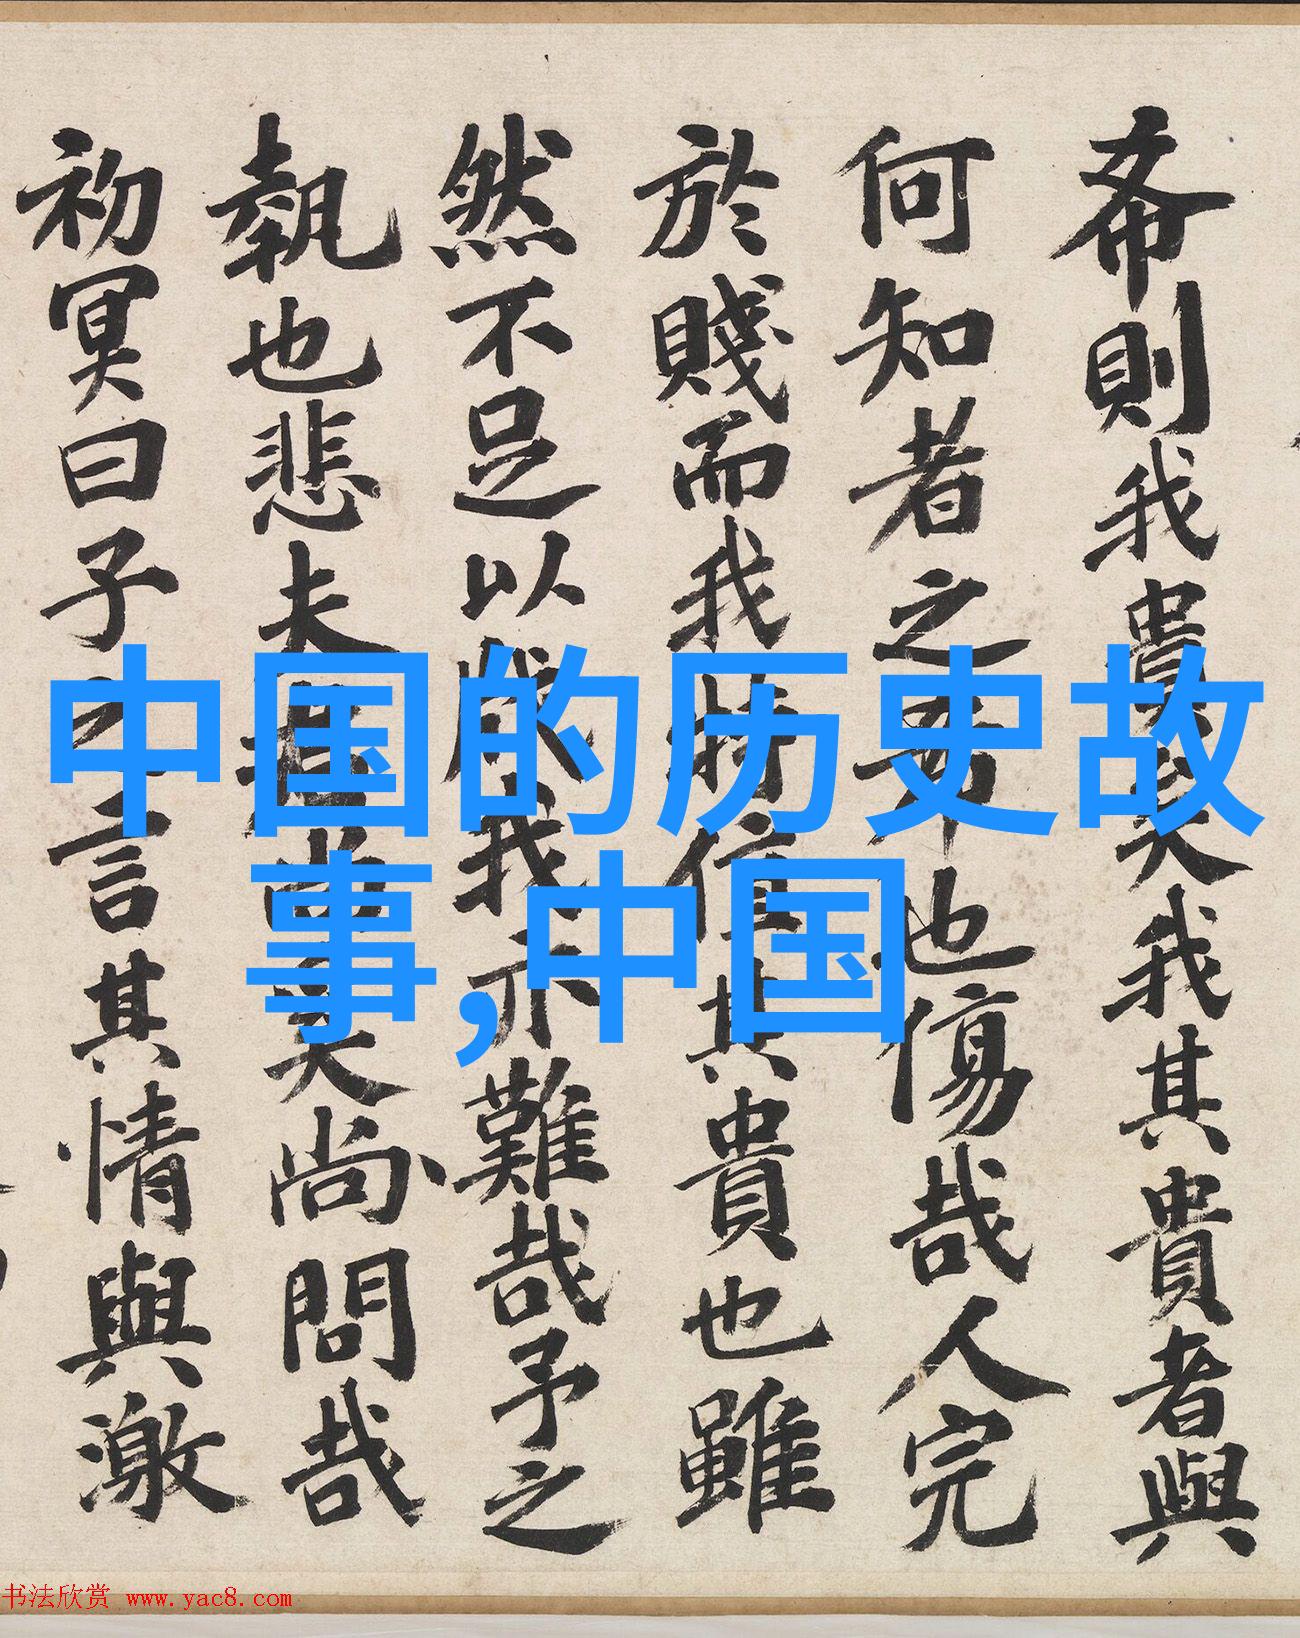 希則我貴矣我其貴者與
何知者之希也傷哉人完
於賤而我特信其貴也雖
然不足以我亦難哉予之
執也悲夫矣尚問哉
初冥曰子之言其情與激
中国的历史故
事,中国
书法欣赏 www.yac8.com